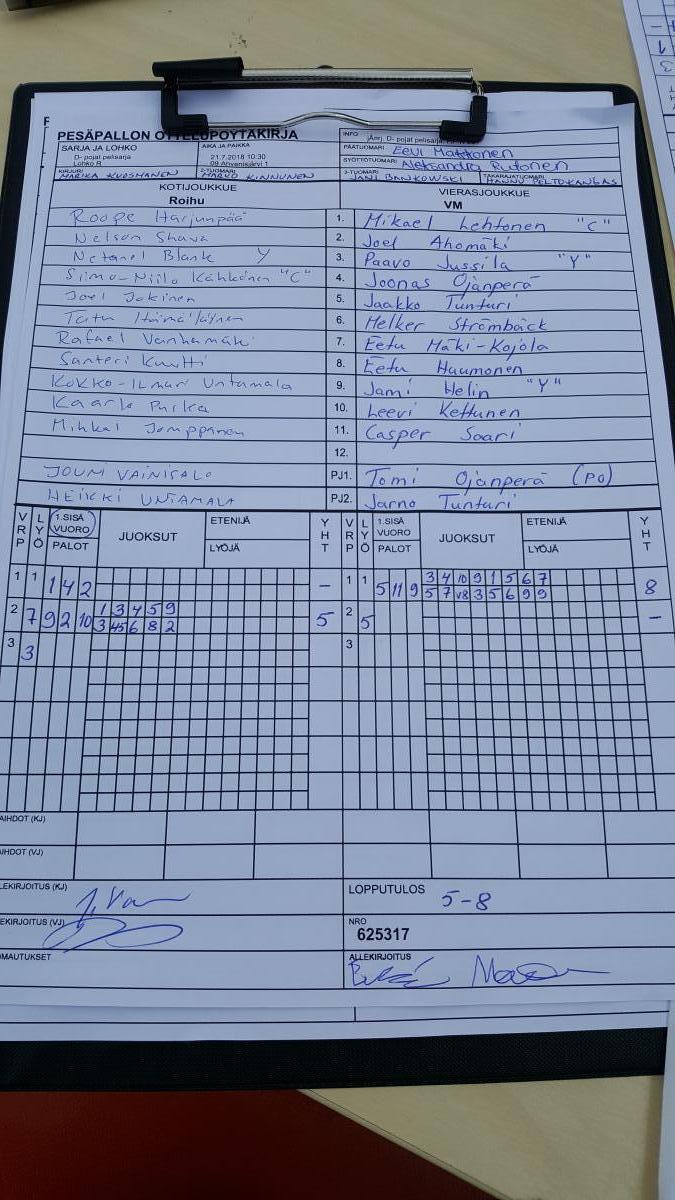 PESÄPALLON OTTELUPÖYTÄKIRJA
SARJA JA LOHKO
D- pojat pelisarja
Lohko R
AIKA JA PAIKKA
21.7.2018 10:30
09 Ahvenisjärvi 1
INFO
PÄÄTUOMARI Eevi Matkonen
SYÖTTÖTUOMARI Aleksandra Rutonen
KIRJURI MARIKA KUOSMANEN
2-TUOMARI MARVO KINNUNEN
3-TUOMARI JANI BANKOWSKI
TAKARAJATUOMARI HANNU PELTOKANGAS
KOTIJOUKKUE
Roihu
VIERASJOUKKUE
VM
Roope Harjunpää 1. Mikael Lehtonen "C"
Nelson Shava 2. Joel Ahomäki
Netanel Blank Y 3. Paavo Jussila "Y"
Simo-Niilo Kähkönen "C" 4. Joonas Ojanperä
Joel Jokinen 5. Jaakko Tunturi
Tatu 6. Helker Strömbäck
Rafael Vanhamäki 7. Eetu Mäki-Kojola
Santeri Kuutti 8. Eetu Huumonen
KOKKO-ILMARI UNTAMALA 9. Jami Helin "Y"
Kaarlo Purka 10. Leevi Kettunen
Mihkal Jomppanen 11. Casper Saari
12.
JOUNI VAINISALO PJ1. Tomi Ojanperä (PO)
HEIKKI UNTAMALA PJ2. Jarno Tunturi
VRP LYÖ 1.SISÄ VUORO PALOT JUOKSUT ETENIJÄ LYÖJÄ YHT
VRP LYÖ 1.SISÄ VUORO PALOT JUOKSUT ETENIJÄ LYÖJÄ YHT
1 1 1 4 2 –
1 1 5 11 9 3 4 10 9 1 5 6 7 8
5 7 V8 3 5 6 9 9
2 7 9 2 10 1 3 4 5 9 5
3 45 6 8 2
2 5 –
3 3
3
AIHDOT (KJ)
AIHDOT (VJ)
LEKIRJOITUS (KJ)
LOPPUTULOS 5-8
EKIRJOITUS (VJ)
NRO
625317
OMAUTUKSET
ALLEKIRJOITUS